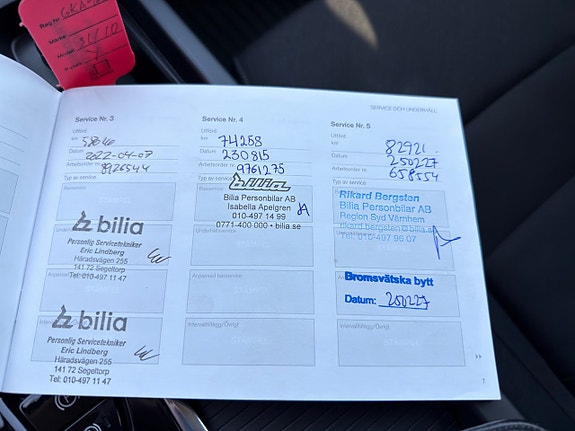 Reg.Nr. GKA
Märke
Modell 31/10
SERVICE OCH UNDERHÅLL
Service Nr. 3
Utförd
km
Datum 2022-04-07
Arbetsorder nr. 8926544
Typ av service
Basservice
bilia
Personlig Servicetekniker
Eric Lindberg
Häradsvägen 255
141 72 Segeltorp
Tel: 010-497 11 47
bilia
Personlig Servicetekniker
Eric Lindberg
Häradsvägen 255
141 72 Segeltorp
Tel: 010-497 11 47
Service Nr. 4
Utförd
km 74258
Datum 230815
Arbetsorder nr. 9761275
Typ av service
Basservice
bilia
Bilia Personbilar AB
Isabella Apelgren
010-497 14 99
0771-400 000 • bilia.se
Underhållsservice
Anpassad basservice
STÄMPEL
Intervalltillägg/Övrigt
STÄMPEL
Service Nr. 5
Utförd
km 82921
Datum 250227
Arbetsorder nr. 658554
Typ av service
Rikard Bergsten
Bilia Personbilar AB
Region Syd Värnhem
rikard.bergsten@bilia.se
Tel 010-497 96 07
Bromsvätska bytt
Datum: 250227
Intervalltillägg/Övrigt
STÄMPEL
7